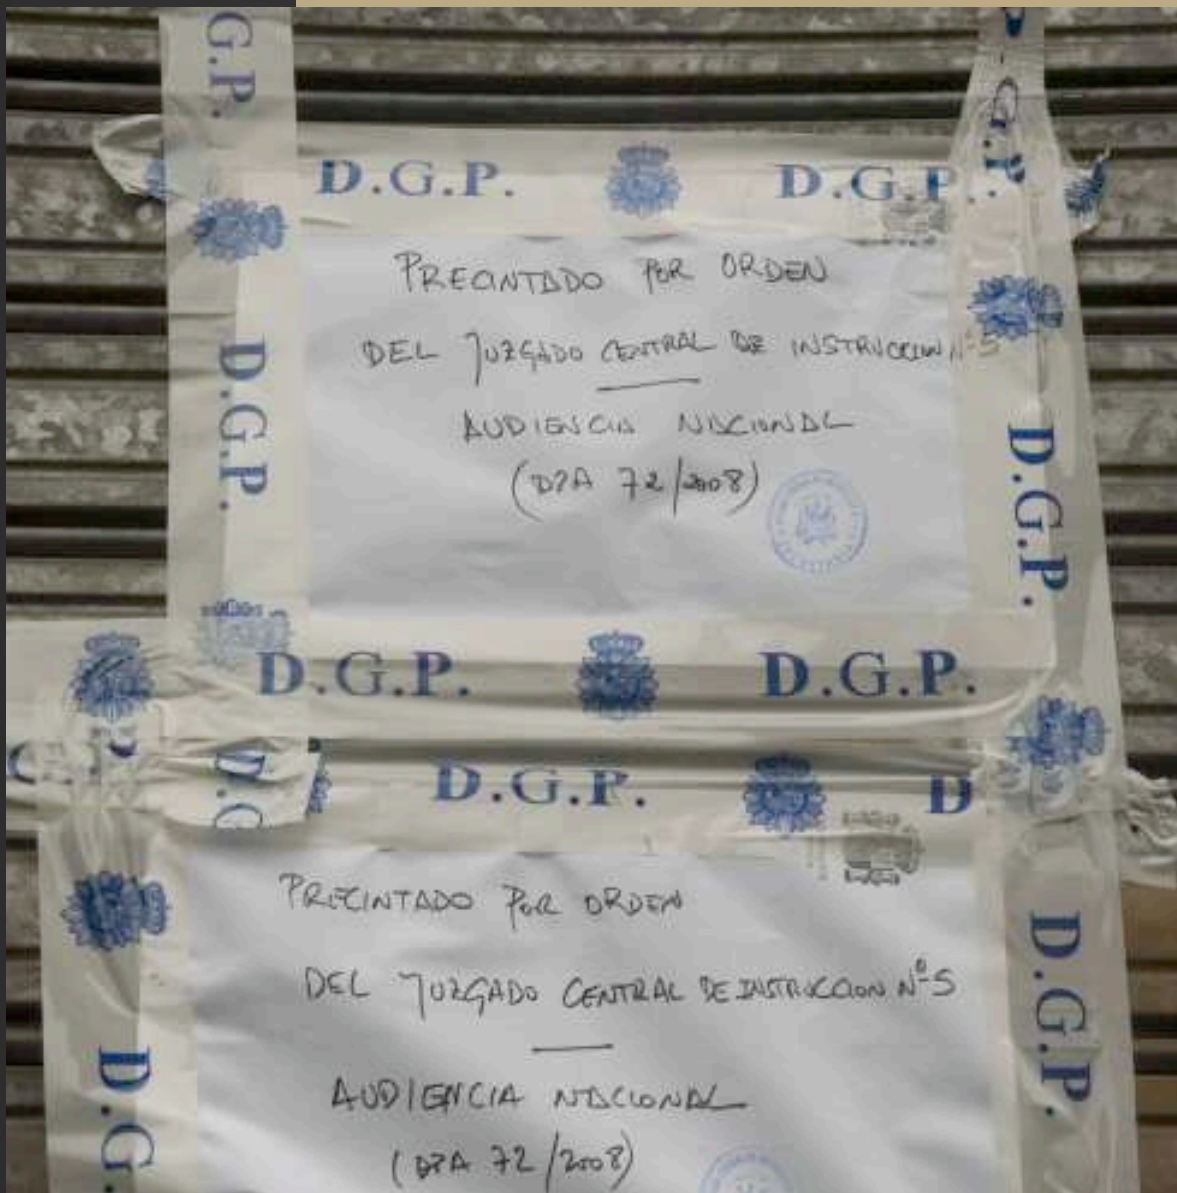 G.P.
G.P.
D.G.P.
D.G.P.
PRECINTADO POR ORDEN
DEL JUZGADO CENTRAL DE INSTRUCCION Nº 5
AUDIENCIA NACIONAL
(DPA 72/2008)
D.G.P.
D.G.P.
D.G.P.
D.G.P.
D.G.P.
D
D.G
PRECINTADO POR ORDEN
DEL JUZGADO CENTRAL DE INSTRUCCION Nº 5
AUDIENCIA NACIONAL
(DPA 72/2008)
D.G.P.
D.G.